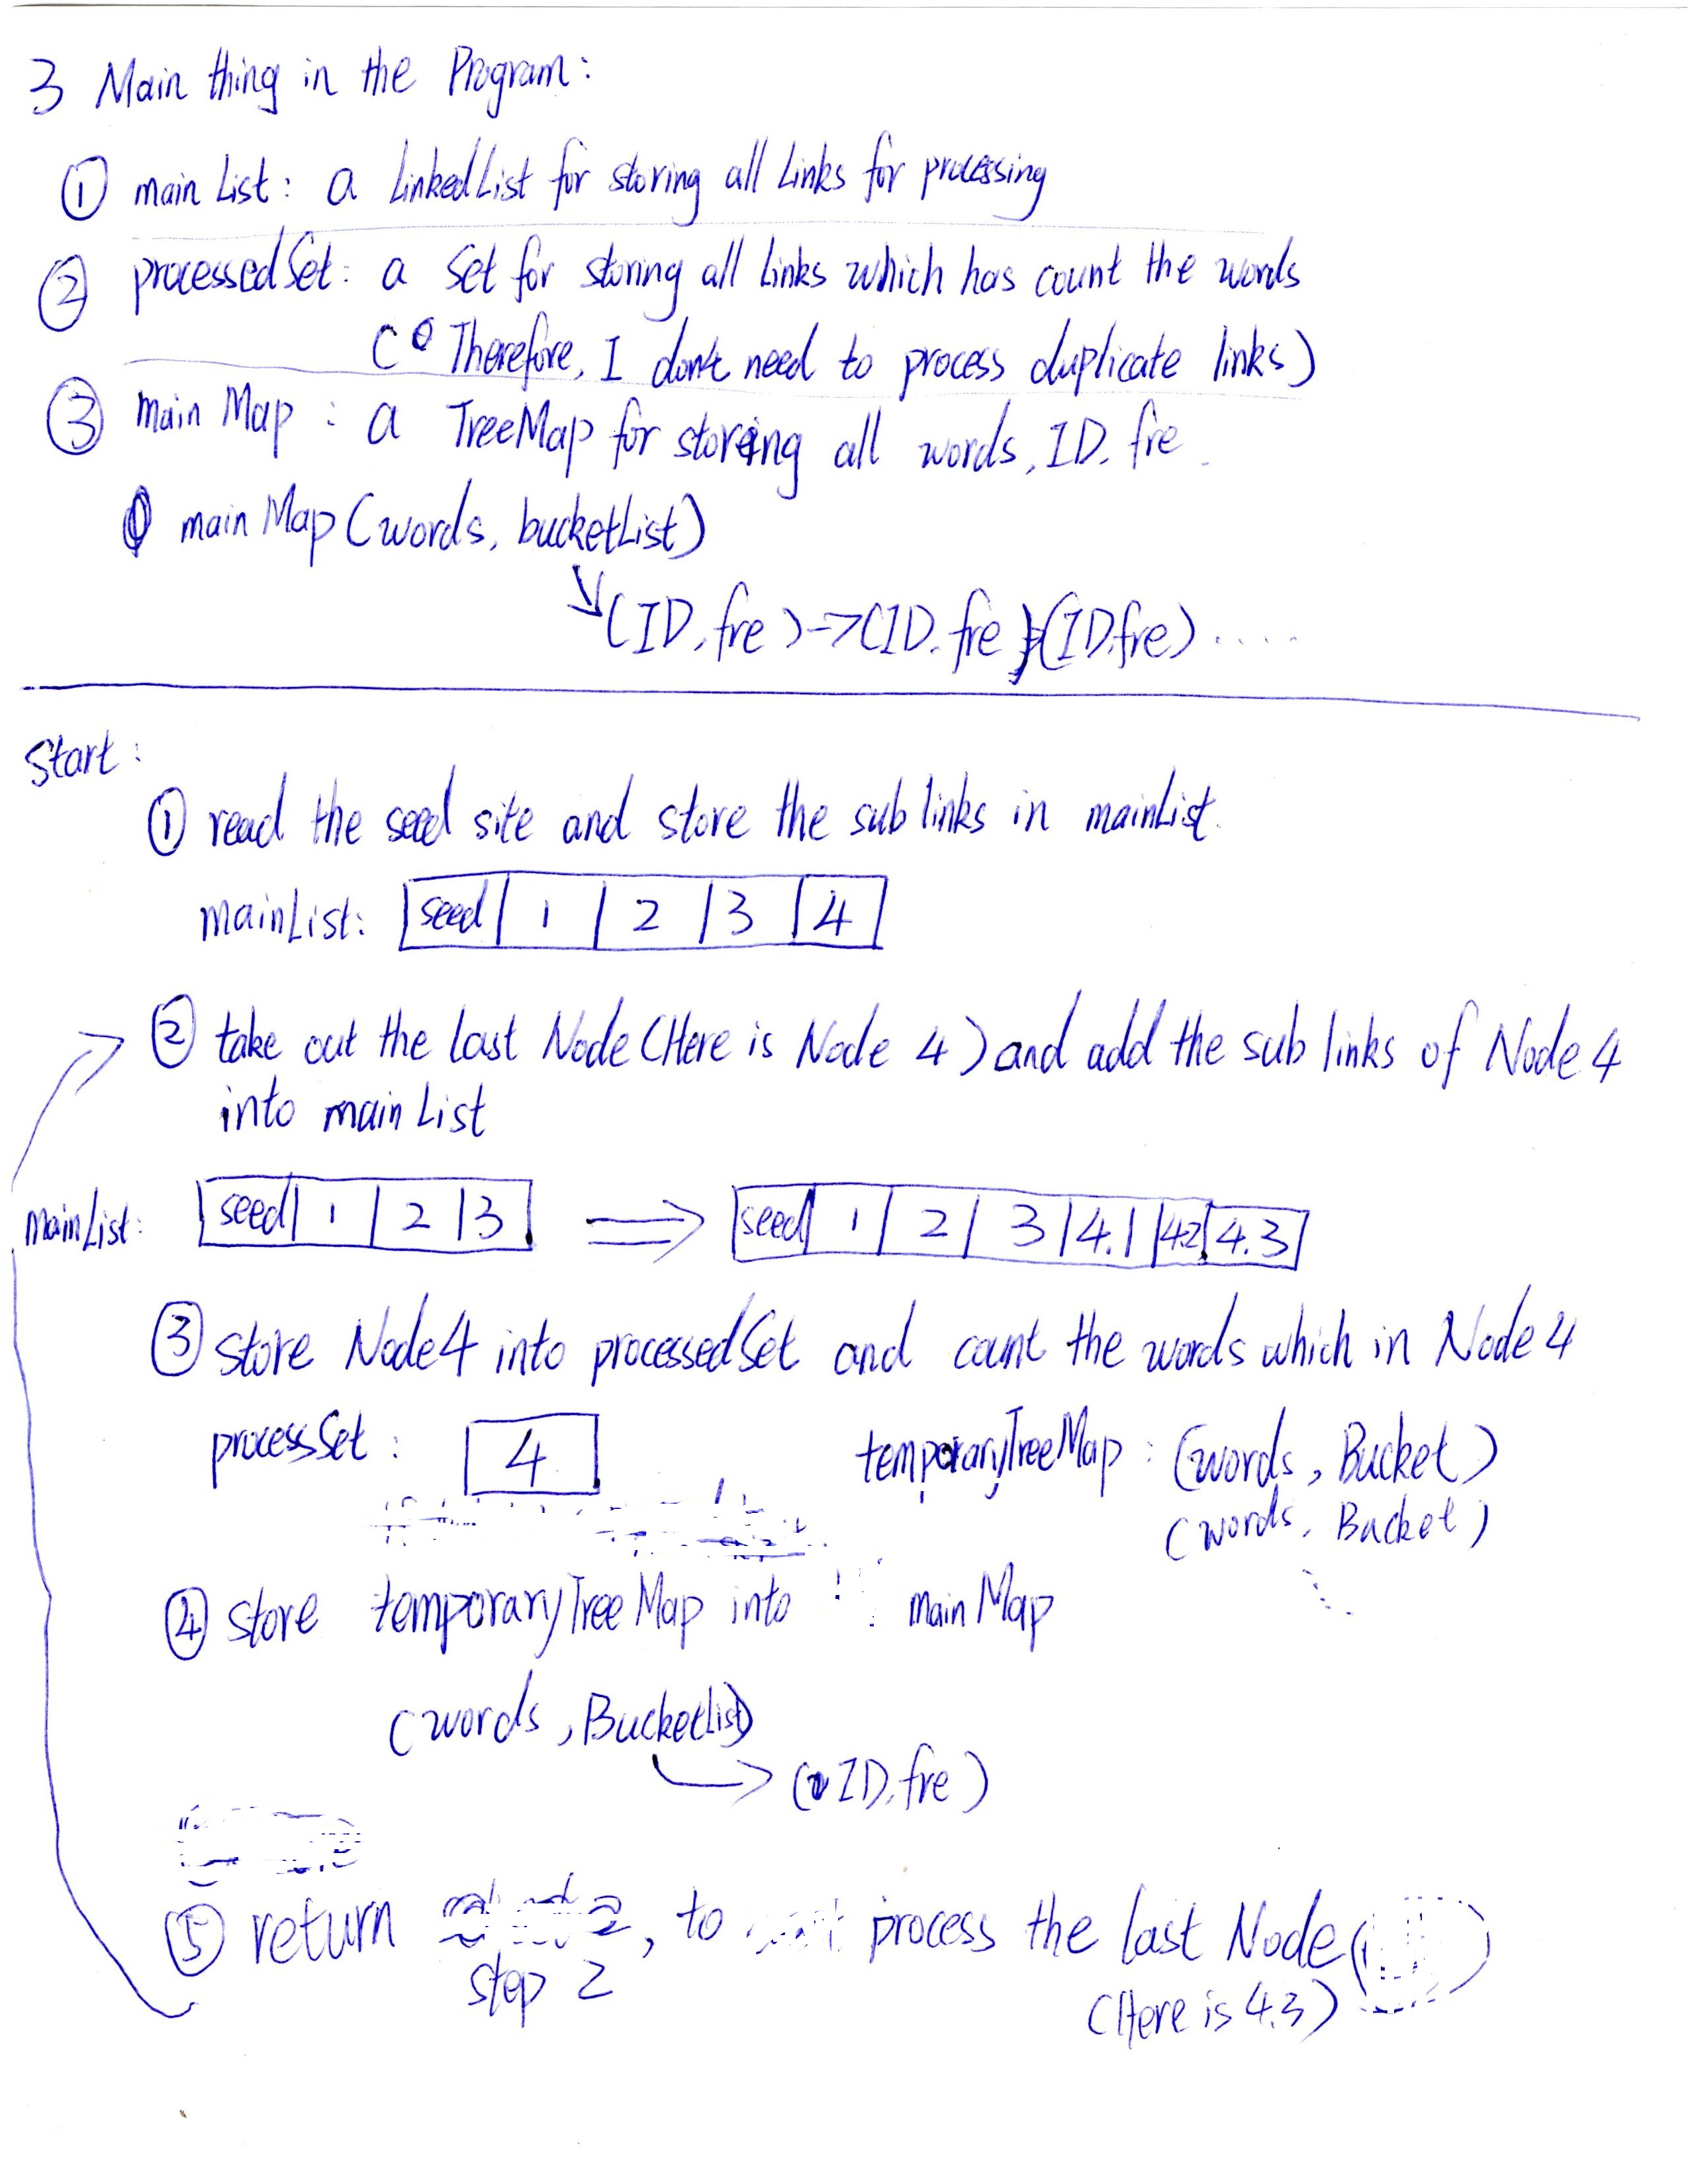 3 Main thing in the Program:
① main List: a LinkedList for storing all Links for processing
② processedSet: a Set for storing all links which has count the words
( Therefore, I don't need to process duplicate links)
③ main Map : a TreeMap for storing all words, ID. fre.
main Map (words, bucketList)
(ID, fre) -> (ID. fre) (ID.fre) ....
Start:
① read the seed site and store the sub links in mainList.
mainList: seed | 1 | 2 | 3 | 4
② take out the last Node (Here is Node 4) and add the sub links of Node 4
into main List
mainList: seed | 1 | 2 | 3 => seed | 1 | 2 | 3 | 4.1 | 4.2 | 4.3
③ store Node4 into processedSet and count the words which in Node 4
processSet : 4 temporaryTreeMap : (words, Bucket)
(words, Bucket)
④ store temporaryTreeMap into main Map
(words, Bucketlist)
-> (ID, fre)
⑤ return , to process the last Node (
step 2 (Here is 4.3)